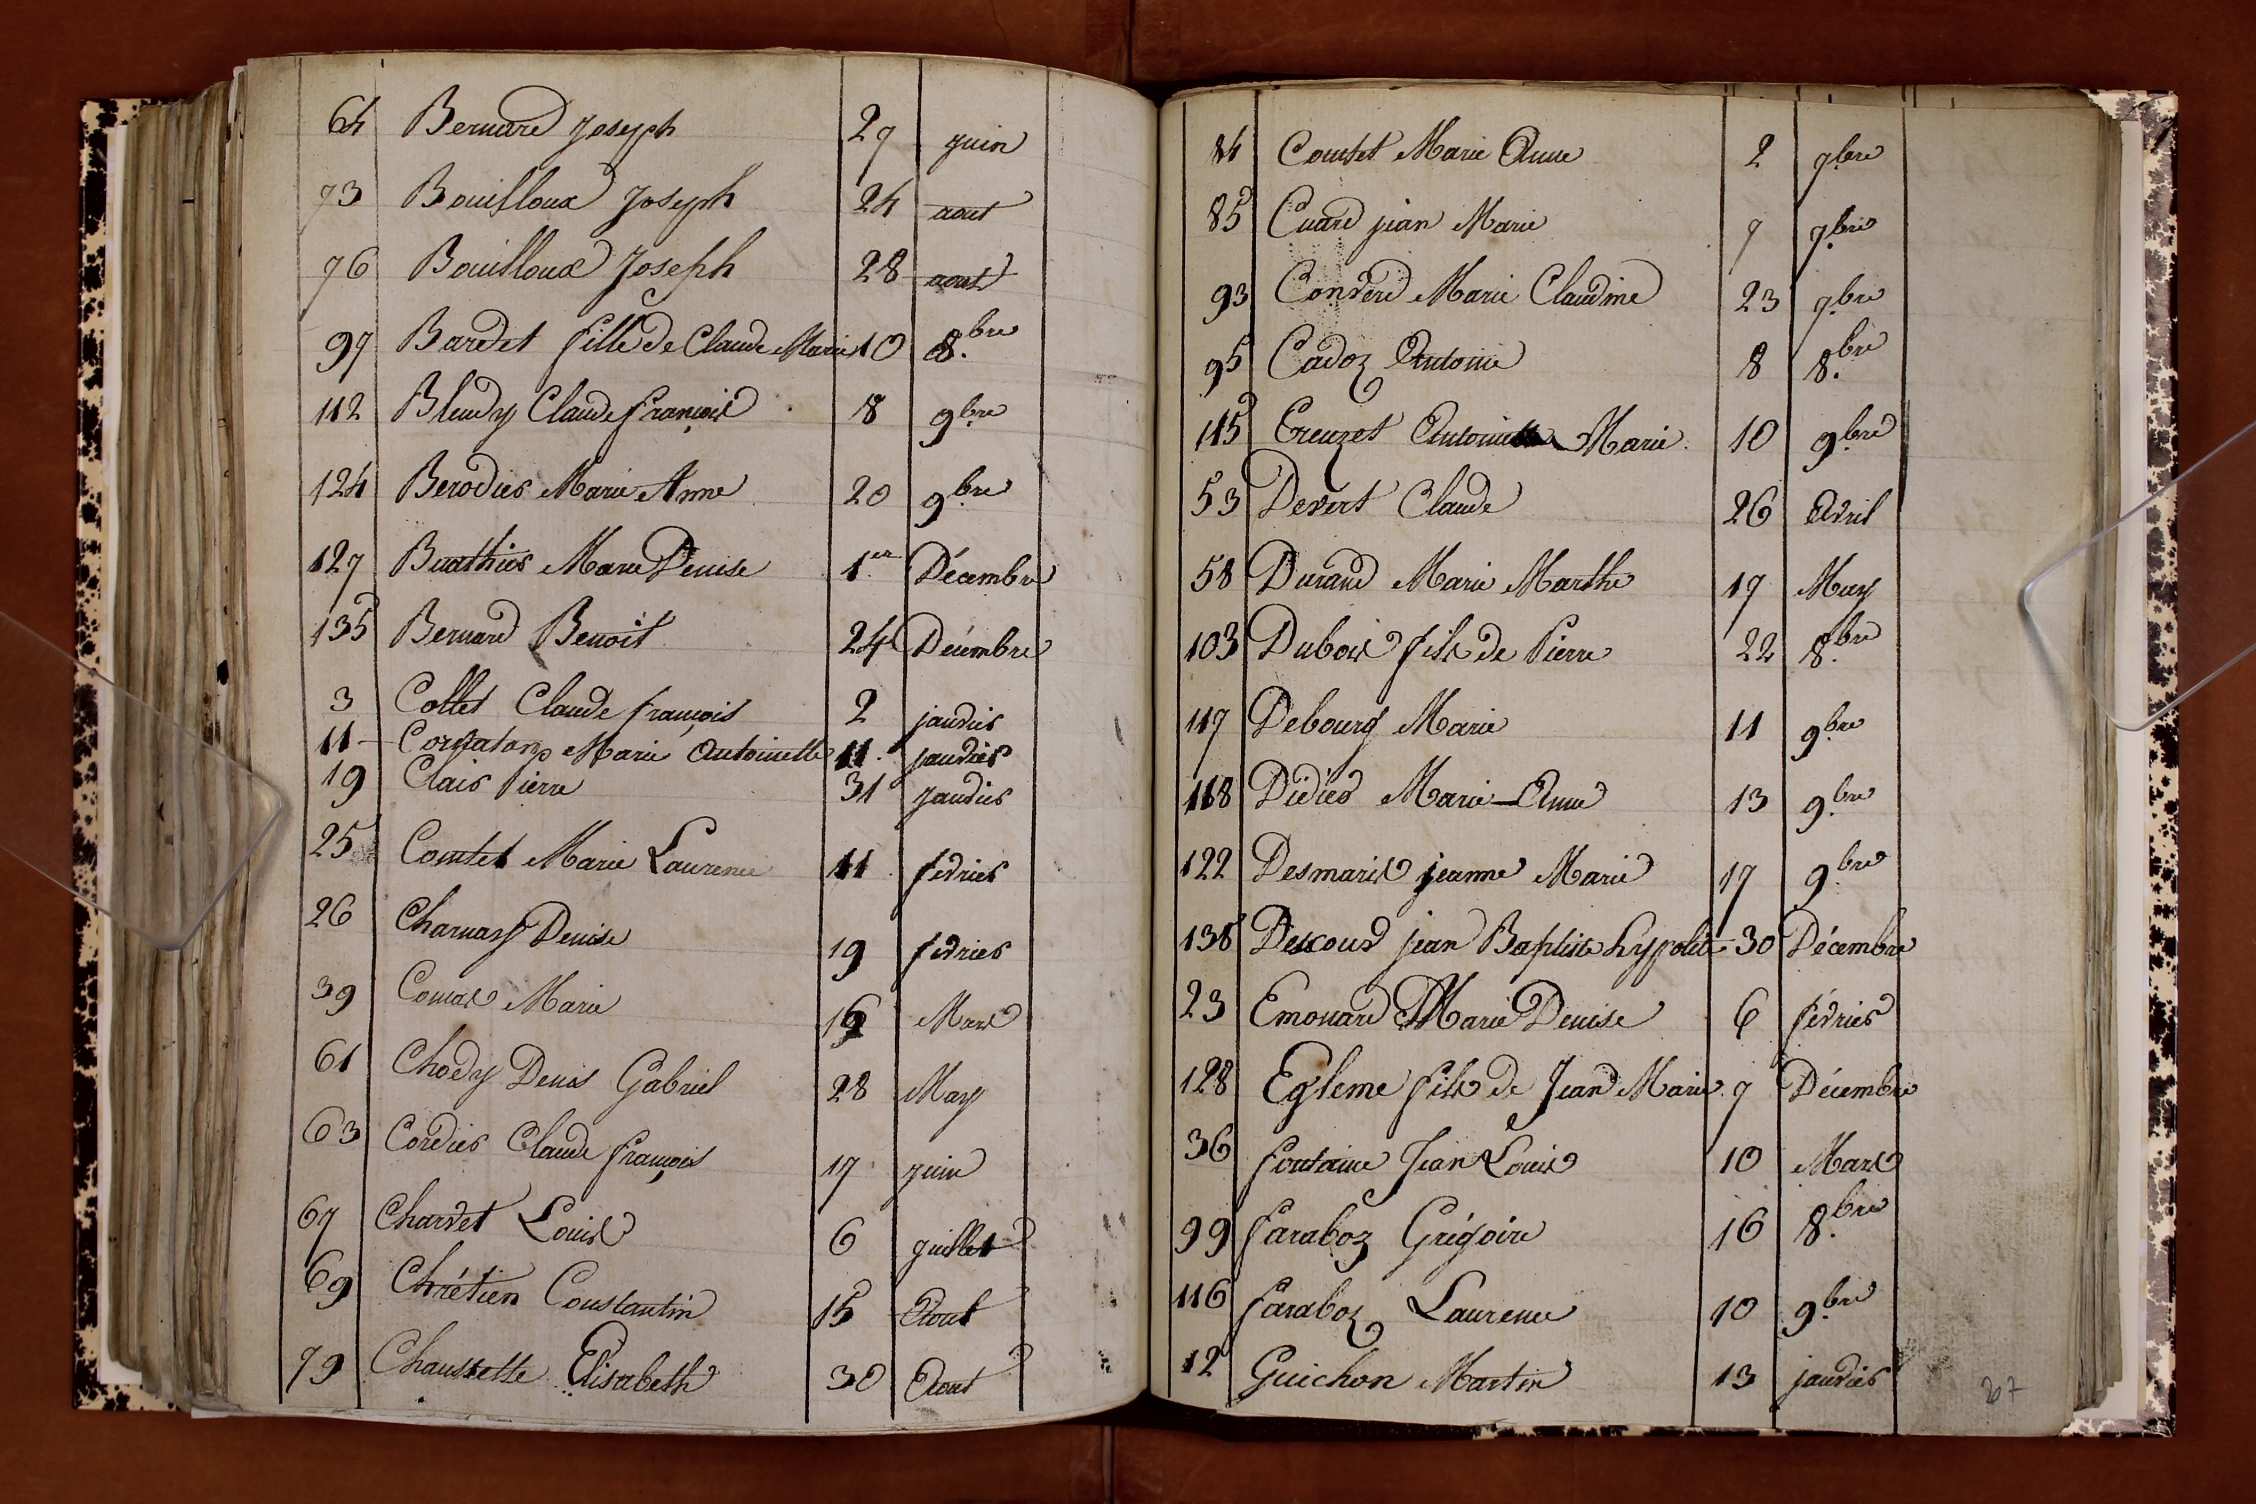 64 Bernard Joseph 29 juin
73 Bouilloux Joseph 24 aout
76 Bouilloux Joseph 28 aout
97 Bardet fille de Claude Marie 10 8.bre
112 Bleudy Claude françois 8 9bre
124 Berodier Marie Anne 20 9bre
127 Buathier Marie Denise 1er Décembre
135 Bernard Benoit 24 Décembre
3 Collet Claude françois 2 janvier
11 Cornaton Marie Antoinette 11 janvier
19 Clais Pierre 31 janvier
25 Comtet Marie Laurence 11 février
26 Charnay Denise 19 février
39 Comas Marie Mars
61 Chody Denis Gabriel 28 May
63 Cordier Claude françois 17 juin
67 Charvet Louis 6 juillet
69 Chrétien Constantin 15 Aout
79 Chaussette Elisabeth 30 Aout
84 Comtet Marie Anne 2 7bre
85 Cuard jean Marie 7 7bre
93 Convérd Marie Claudine 23 7bre
95 Cadoz Antoine 8 8.bre
115 Creuzet Marie 10 9bre
53 Devert Claude 26 Avril
58 Durand Marie Marthe 17 May
103 Dubois fils de Pierre 22 8.bre
117 Debourg Marie 11 9bre
118 Didier Marie Anne 13 9bre
122 Desmaris jeanne Marie 17 9bre
138 Descours jean Baptiste hypolite 30 Décembre
23 Emonard Marie Denise 6 février
128 Egleme fils de Jean Marie 7 Décembre
36 fontaine Jean Louis 10 Mars
99 faraboz Grégoire 16 8.bre
116 faraboz Laurence 10 9.bre
12 Guichon Martin 13 janvier
207